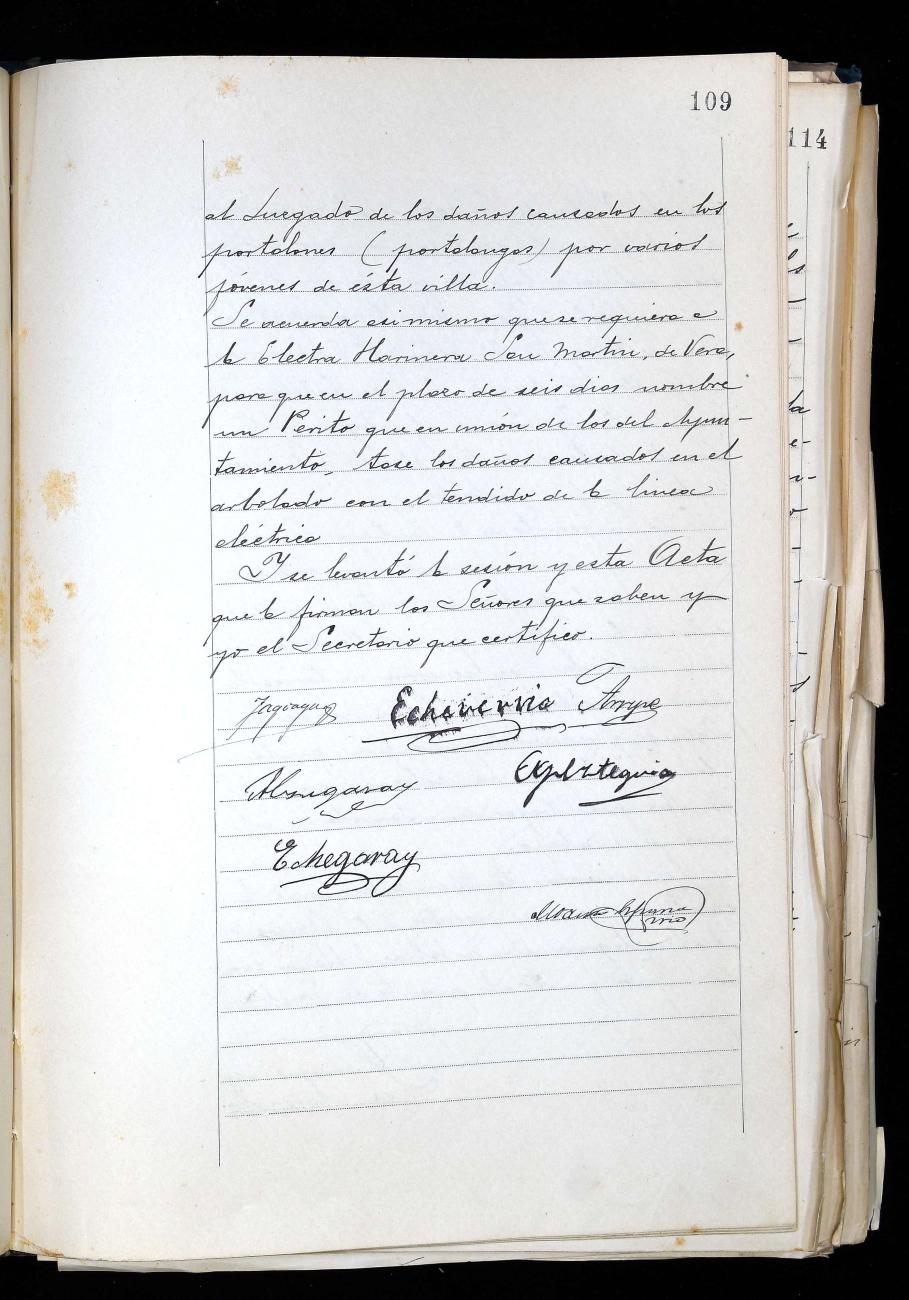 109
114
al Juzgado de los daños causados en los
portalones (portalongos) por varios
jóvenes de ésta villa.
Se acuerda asimismo que se requiera a
la Electra Harinera San Martin, de Vera,
para que en el plazo de seis dias nombre
un Perito que en unión de los del Ayun-
tamiento, tase los daños causados en el
arbolado con el tendido de la linea
eléctrica
Y se levantó la sesión y esta Acta
que la firman los Señores que saben y
yo el Secretario que certifico.
Echeverria
Alzugaray
Echegaray